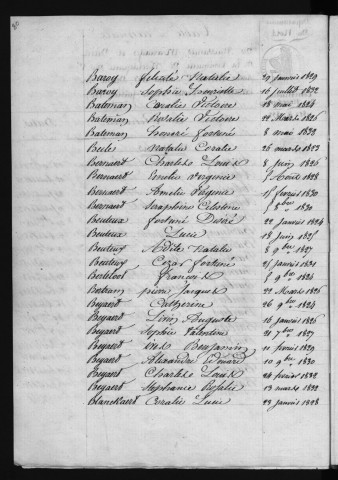 Baroy félicité Natalie 29 janvier 1829
Baroy Sophie Henriette 16 juillet 1832
Bateman Coralie Victoire 18 mai 1824
Bateman Rosalie Victoire 22 Mars 1826
Bateman honoré fortuné 8 mai 1832
Beele Natalie Coralie 26 mars 1823
Bernaert Charles Louis 8 juin 1826
Bernaert Amelie Virginie 7 Août 1828
Bernaert Amelie Virginie 15 février 1830
Bernaert Seraphine Celestine 1 8bre 1830
Beuteux fortuné Désiré 22 janvier 1824
Beuteux Lucie 18 juin 1825
Beuteux Adèle Natalie 8 9bre 1827
Beuteux Cezar fortuné 25 janvier 1831
François 9bre 1824
Bertram pierre Jacques 22 Mars 1826
Beyaert Catherine 26 9bre 1824
Beyaert Auguste 16 janvier 1826
Beyaert Sophie Valentine 21 7bre 1827
Beyaert Benjamin 11 février 1829
Beyaert Alexandre Edouard 10 9bre 1830
Beyaert Charles Louis 24 février 1832
Beyaert Stephanie Rosalie 13 mars 1832
Blanckaert Coralie Lucie 23 janvier 1828